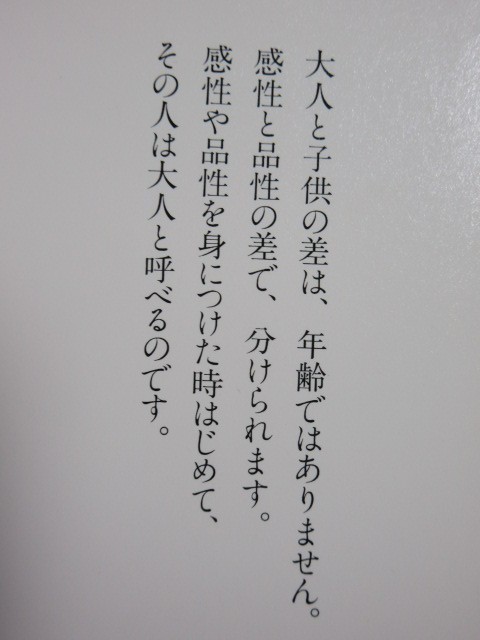 大人と子供の差は、年齢ではありません。
感性と品性の差で、分けられます。
感性や品性を身につけた時はじめて、
その人は大人と呼べるのです。